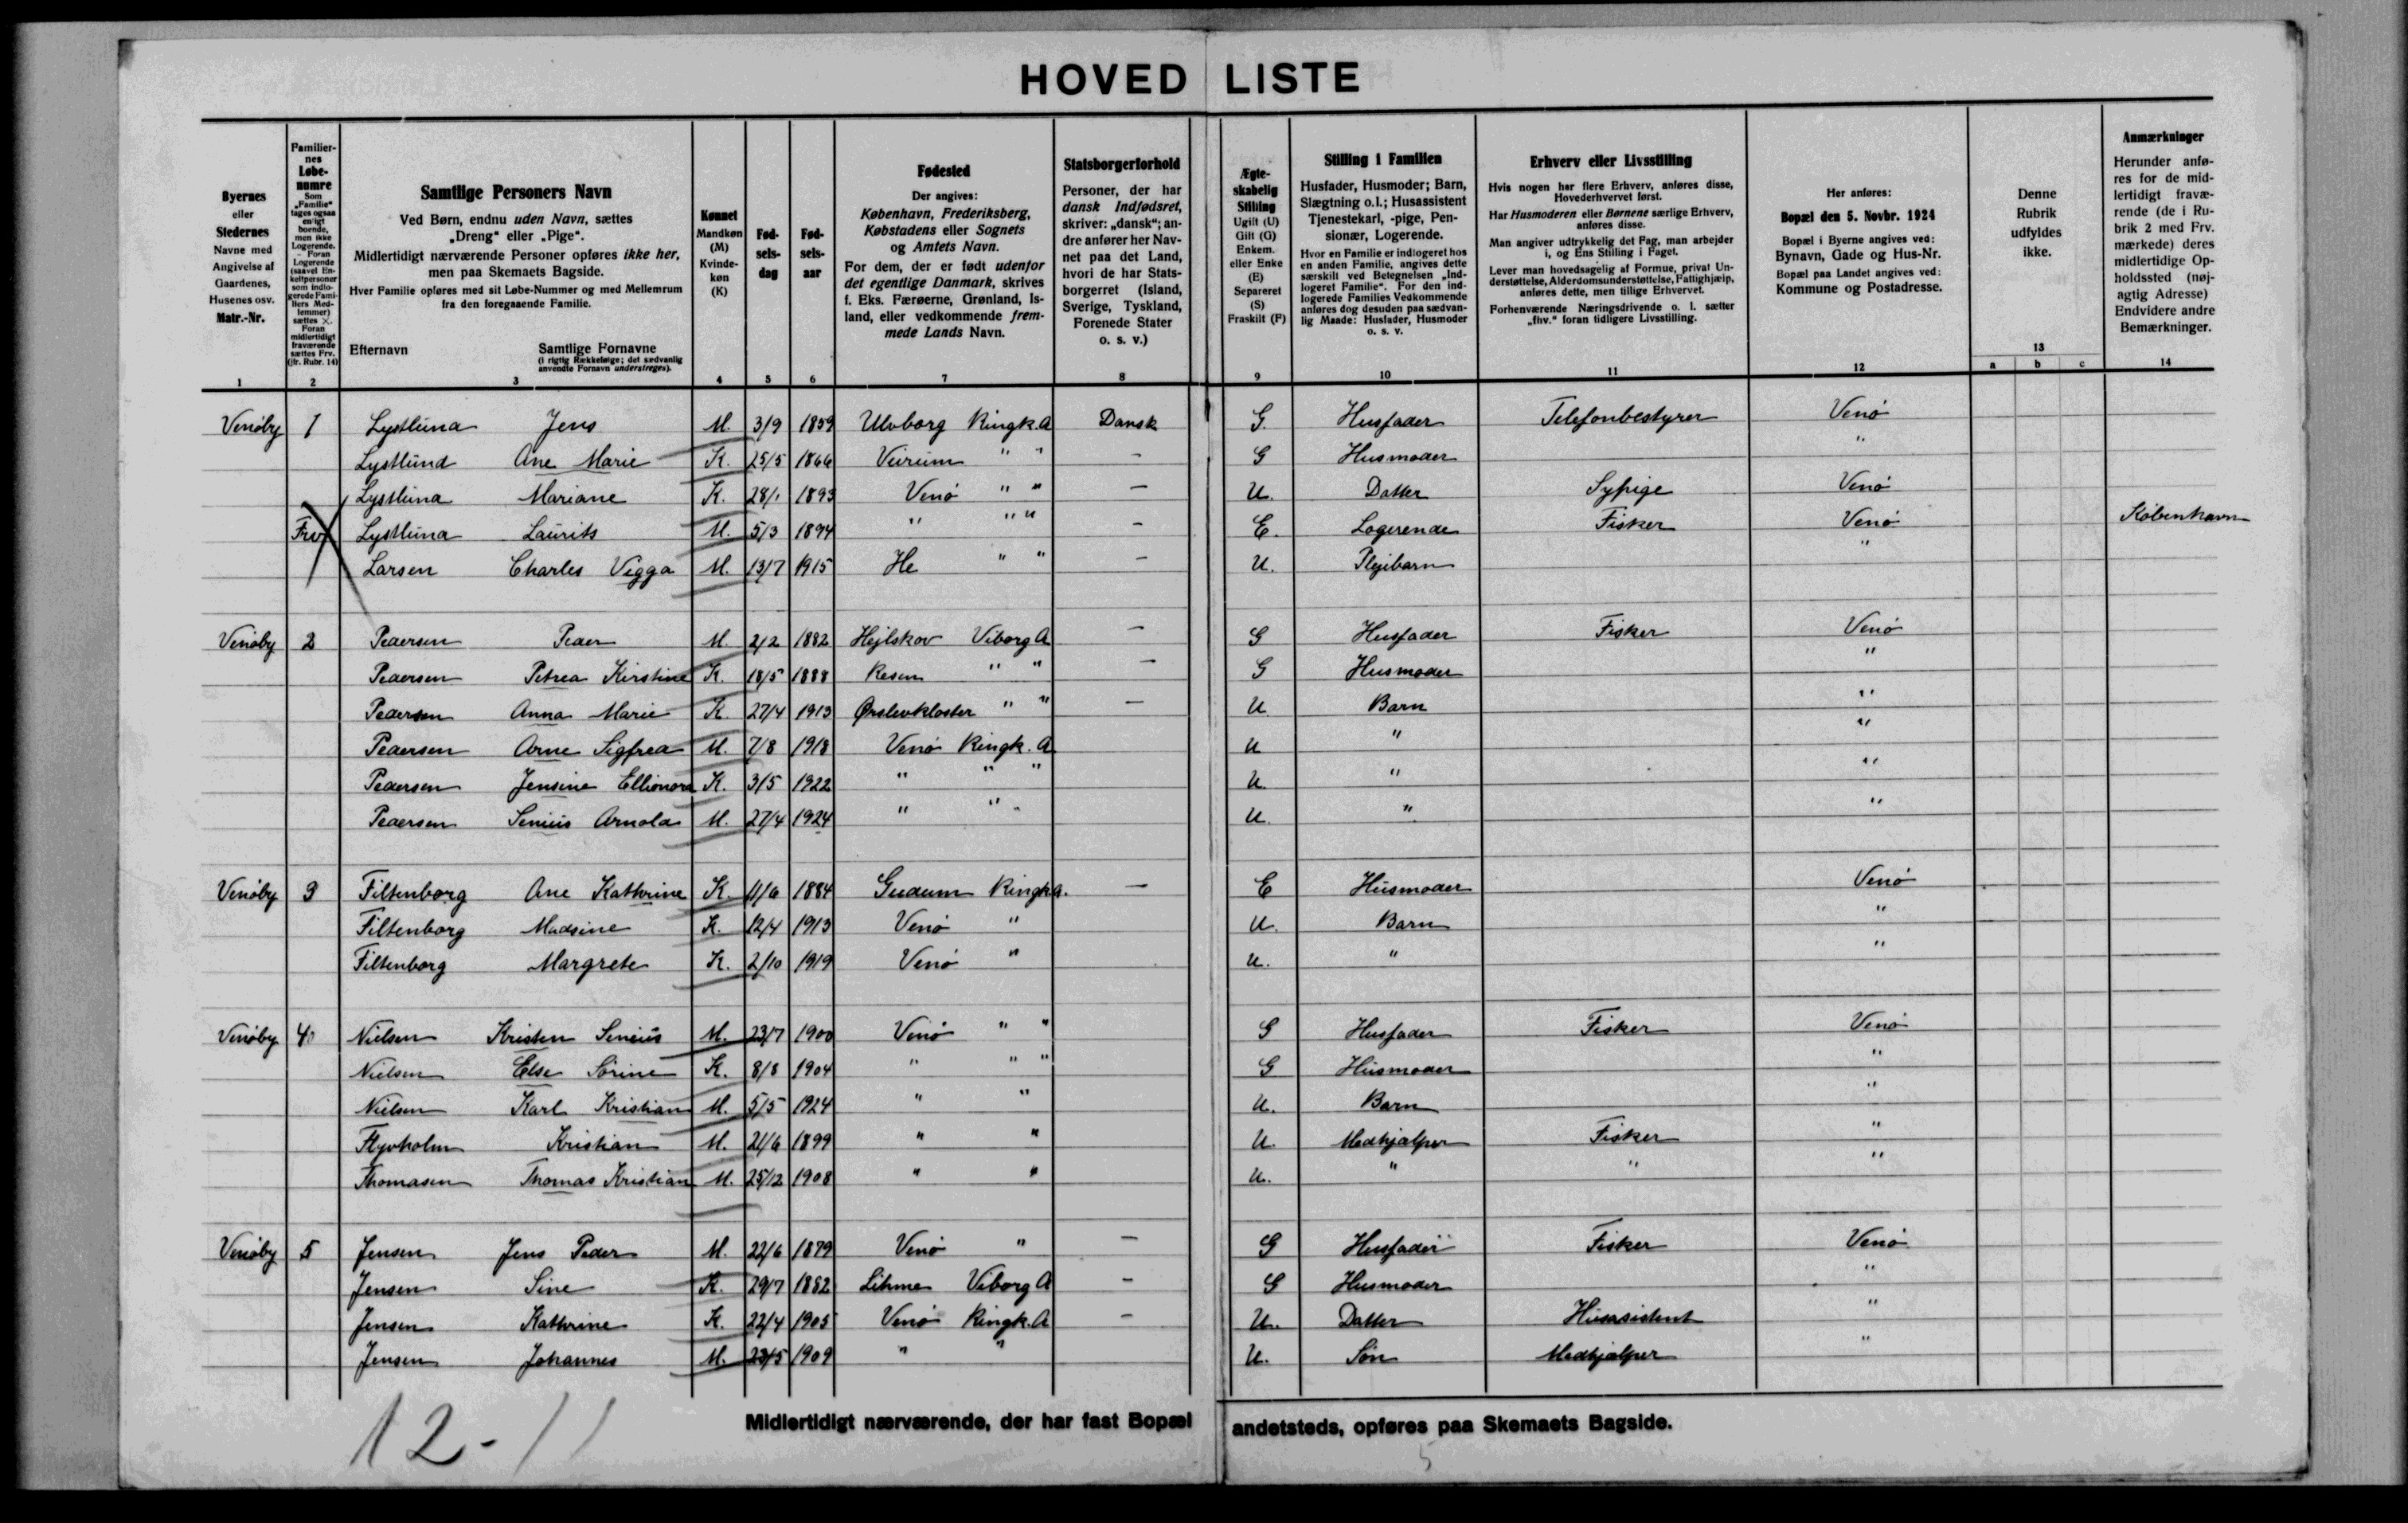 HOVED LISTE
Byernes eller Stedernes Navne med Angivelse af Gaardenes, Husenes osv. Matr.-Nr.
Familiernes Løbenumre Som „Familie" tages ogsaa enligt boende, men ikke Logerende. – Foran Logerende (saavel Enkeltpersoner som indlogerede Familiers Medlemmer) sættes ×. Foran midlertidigt fraværende sættes Frv. (jfr. Rubr. 14)
Samtlige Personers Navn
Ved Børn, endnu uden Navn, sættes „Dreng" eller „Pige".
Midlertidigt nærværende Personer opføres ikke her, men paa Skemaets Bagside.
Hver Familie opføres med sit Løbe-Nummer og med Mellemrum fra den foregaaende Familie.
Efternavn Samtlige Fornavne (i rigtig Rækkefølge; det sædvanlig anvendte Fornavn understreges).
Kønnet Mandkøn (M) Kvindekøn (K)
Fødselsdag
Fødselsaar
Fødested
Der angives: København, Frederiksberg, Købstadens eller Sognets og Amtets Navn.
For dem, der er født udenfor det egentlige Danmark, skrives f. Eks. Færøerne, Grønland, Island, eller vedkommende fremmede Lands Navn.
Statsborgerforhold
Personer, der har dansk Indfødsret, skriver: „dansk"; andre anfører her Navnet paa det Land, hvori de har Statsborgerret (Island, Sverige, Tyskland, Forenede Stater o. s. v.)
Ægteskabelig Stilling Ugift (U) Gift (G) Enkem. eller Enke (E) Separeret (S) Fraskilt (F)
Stilling i Familien
Husfader, Husmoder; Barn, Slægtning o.l.; Husassistent Tjenestekarl, -pige, Pensionær, Logerende.
Hvor en Familie er indlogeret hos en anden Familie, angives dette særskilt ved Betegnelsen „Indlogeret Familie". For den indlogerede Families Vedkommende anføres dog desuden paa sædvanlig Maade: Husfader, Husmoder o. s. v.
Erhverv eller Livsstilling
Hvis nogen har flere Erhverv, anføres disse, Hovederhvervet først.
Har Husmoderen eller Børnene særlige Erhverv, anføres disse.
Man angiver udtrykkelig det Fag, man arbejder i, og Ens Stilling i Faget.
Lever man hovedsagelig af Formue, privat Understøttelse, Alderdomsunderstøttelse, Fattighjælp, anføres dette, men tillige Erhvervet.
Forhenværende Næringsdrivende o. l. sætter „fhv." foran tidligere Livsstilling.
Her anføres: Bopæl den 5. Novbr. 1924
Bopæl i Byerne angives ved: Bynavn, Gade og Hus-Nr.
Bopæl paa Landet angives ved: Kommune og Postadresse.
Denne Rubrik udfyldes ikke.
Anmærkninger
Herunder anføres for de midlertidigt fraværende (de i Rubrik 2 med Frv. mærkede) deres midlertidige Opholdssted (nøjagtig Adresse) Endvidere andre Bemærkninger.
1 2 3 4 5 6 7 8 9 10 11 12 13 a b c 14
Venøby 1 Lystlund Jens M. 3/9 1859 Ulvborg Ringk. A Dansk G. Husfader Telefonbestyrer Venø
Lystlund Ane Marie K. 25/5 1866 Veirum " " – G Husmoder "
Lystlund Mariane K. 28/1 1893 Venø " " – U. Datter Sypige Venø
Frv Lystlund Laurits M. 5/3 1894 " " " – E. Logerende Fisker Venø København
Larsen Charles Vigga M. 13/7 1915 He " " – U. Plejebarn "
Venøby 2 Pedersen Peder M. 2/2 1882 Hejlskov Viborg A – G Husfader Fisker Venø
Pedersen Petrea Kirstine K. 18/5 1888 Resen " " – G Husmoder "
Pedersen Anna Marie K. 27/4 1913 Ørslevkloster " " – U. Barn "
Pedersen Arne Sigfred M. 7/8 1918 Venø Ringk. A U " "
Pedersen Jensine Ellionora K. 3/5 1922 " " " U. " "
Pedersen Senius Arnold M. 27/4 1924 " " " U. " "
Venøby 3 Filtenborg Ane Kathrine K. 11/6 1884 Gudum Ringk A. – E Husmoder Venø
Filtenborg Madsine K. 12/4 1913 Venø " U. Barn "
Filtenborg Margrete K. 2/10 1919 Venø " U. " "
Venøby 4 Nielsen Kristen Senius M. 23/7 1900 Venø " " G Husfader Fisker Venø
Nielsen Else Sørine K. 8/8 1904 " " " G Husmoder "
Nielsen Karl Kristian M. 5/5 1924 " " U. Barn "
Flyvholm Kristian M. 21/6 1899 " " U. Medhjælper Fisker "
Thomasen Thomas Kristian M. 25/12 1908 " " U. " " "
Venøby 5 Jensen Jens Peder M. 22/6 1879 Venø " – G Husfader Fisker Venø
Jensen Sine K. 29/7 1882 Lihme Viborg A – G Husmoder "
Jensen Kathrine K. 22/4 1905 Venø Ringk. A – U. Datter Husasistent "
Jensen Johannes M. 23/5 1909 " " U. Søn Medhjælper "
Midlertidigt nærværende, der har fast Bopæl andetsteds, opføres paa Skemaets Bagside.
12-11
5